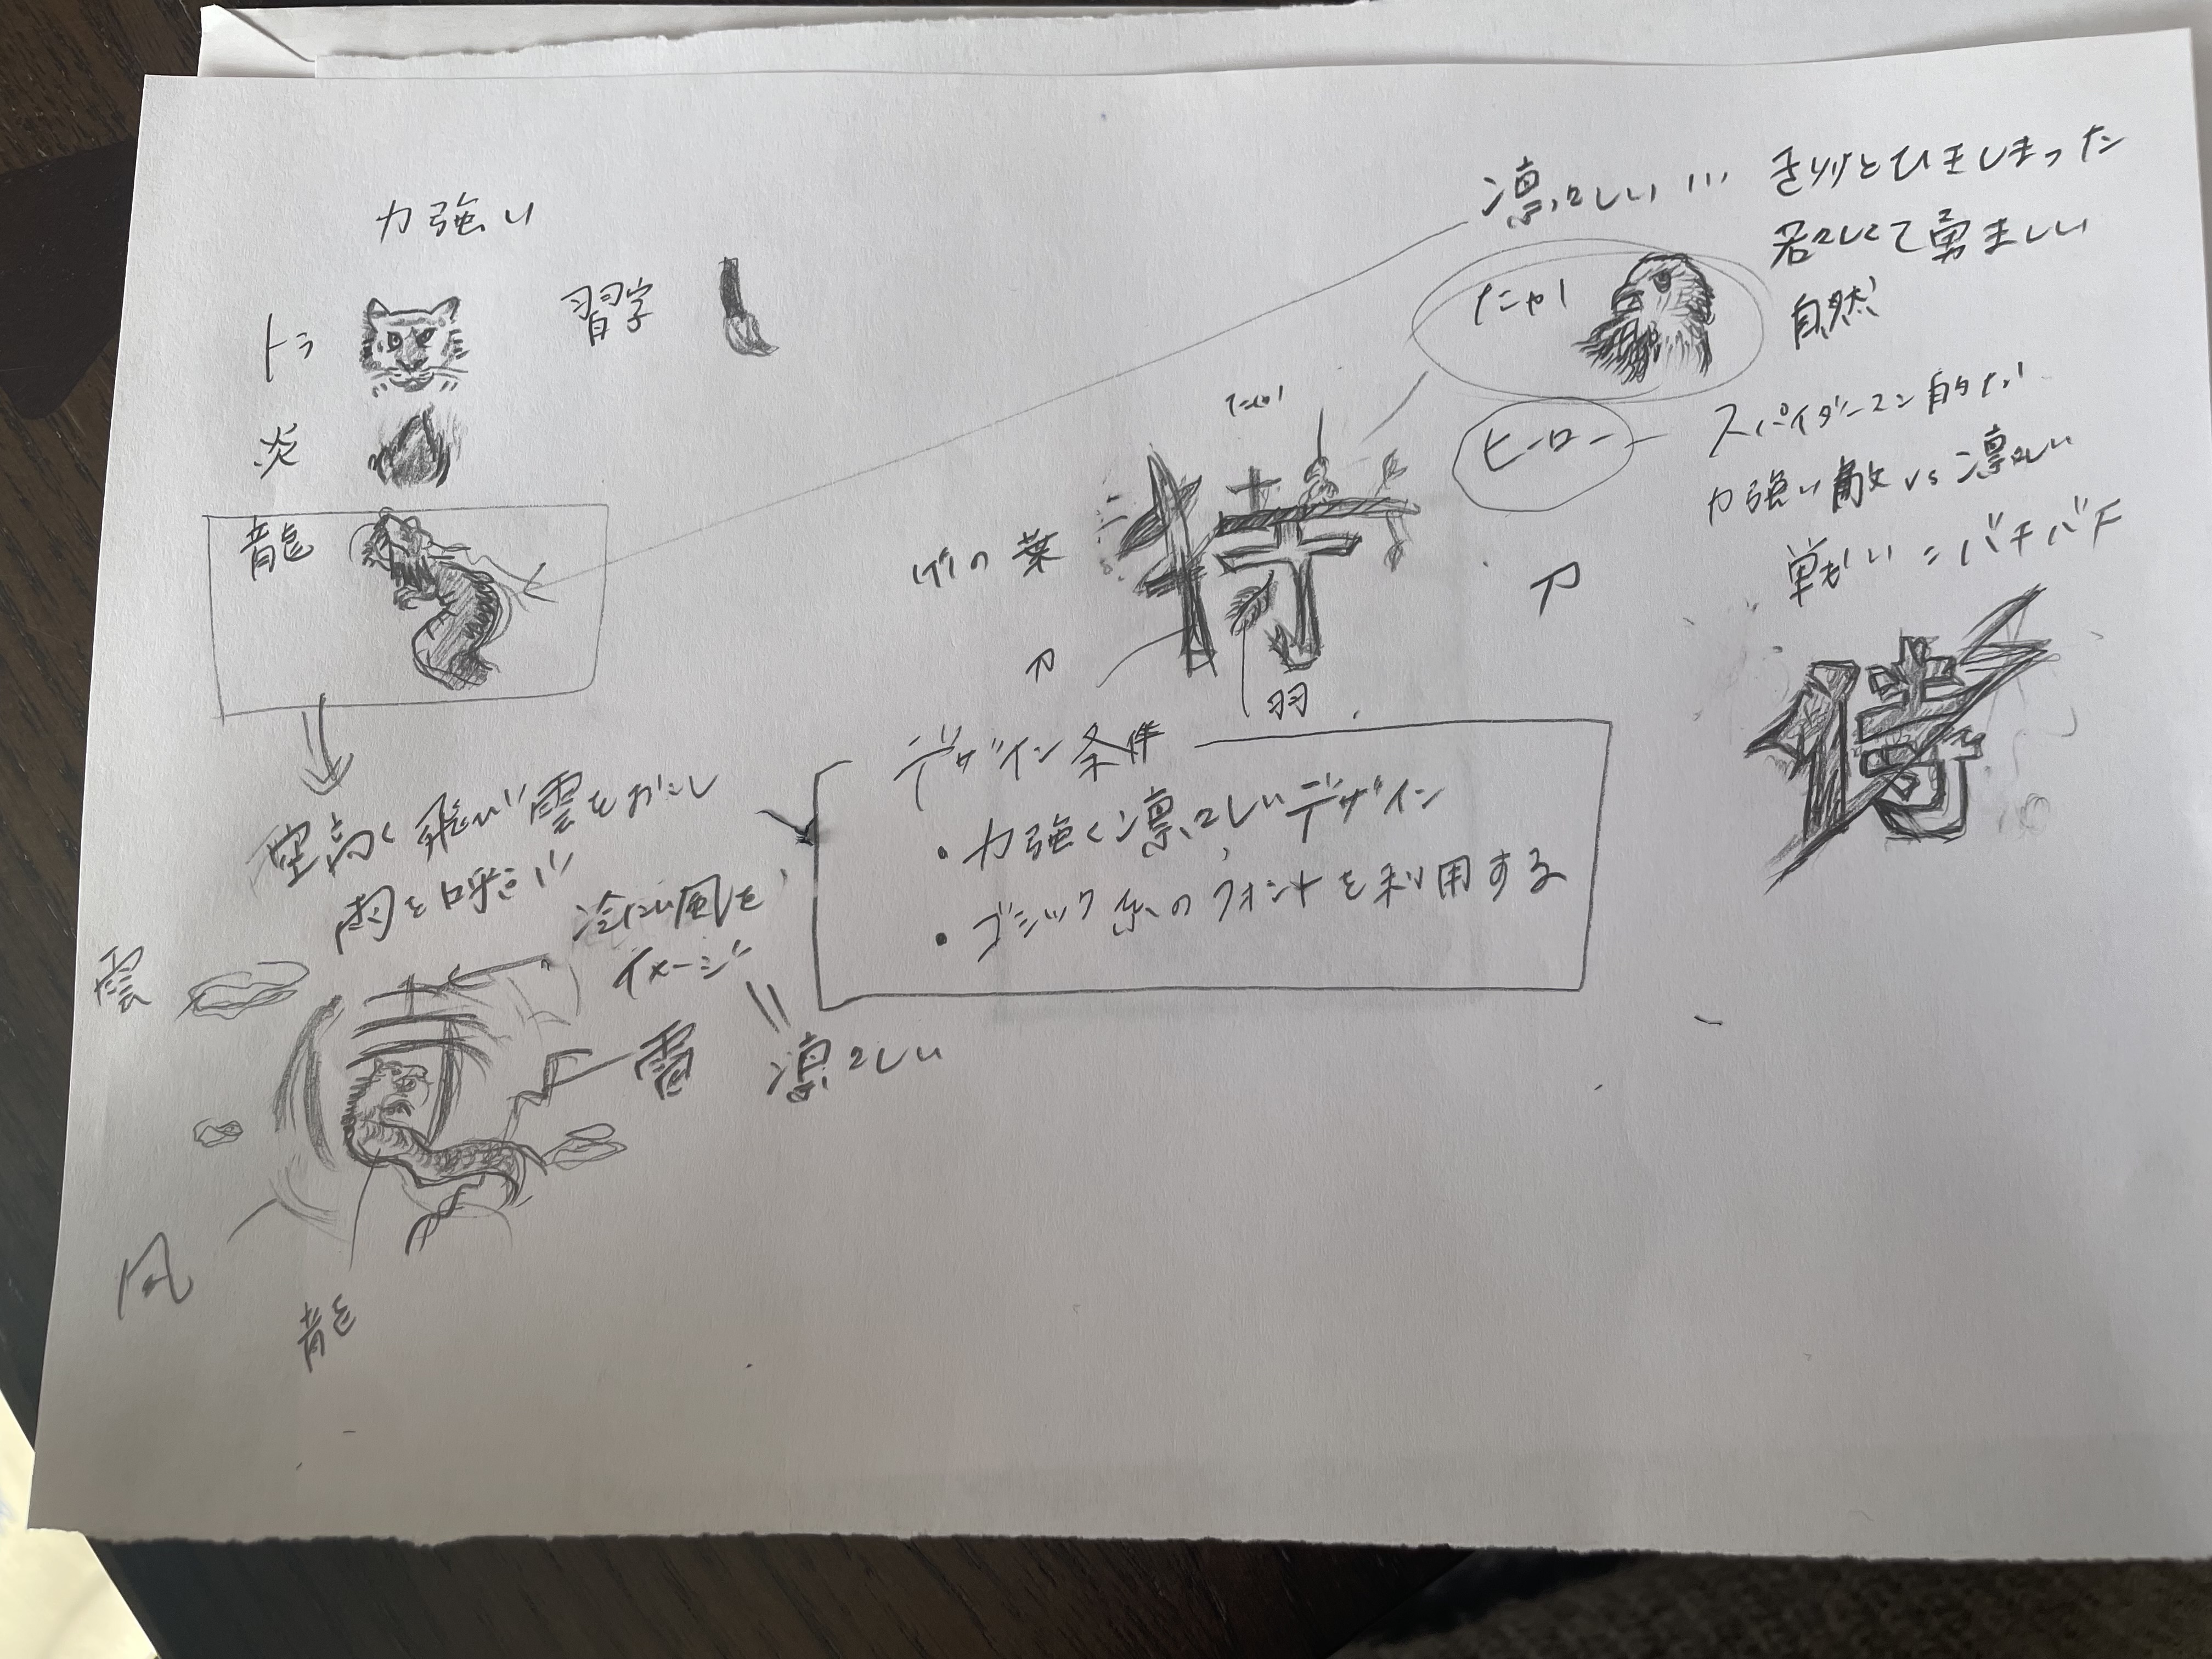 力強い
トラ
習字
炎
龍
空高く飛び雲をおこし
雨を呼ぶ
冷たい風を
イメージ
凛々しい
雲
雷
風
龍
凛々しい… きりりとひきしまった
若々しくて勇ましい
自然
たか
たか
ヒーロー
スパイダーマン的な
力強い敵 vs 凛々しい
戦い=バチバチ
竹の葉
侍
刀
羽
刀
侍
侍
デザイン条件
・力強く凛々しいデザイン
・ゴシック系のフォントを利用する